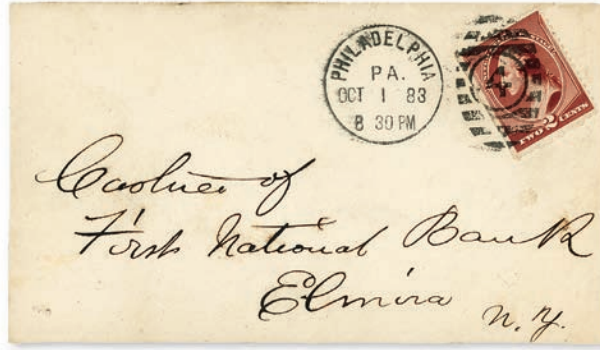 PHILADELPHIA
PA.
OCT 1 83
8 30 PM
4
TWO 2 CENTS
Cashier of
First National Bank
Elmira N.Y.